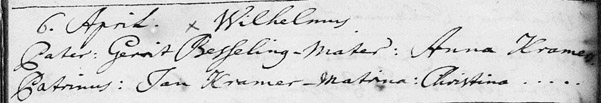 6. April. x Wilhelmus
Pater: Gerrit Besseling - Mater: Anna Kramer
Patrinus: Jan Kramer - Matrina: Christina .....